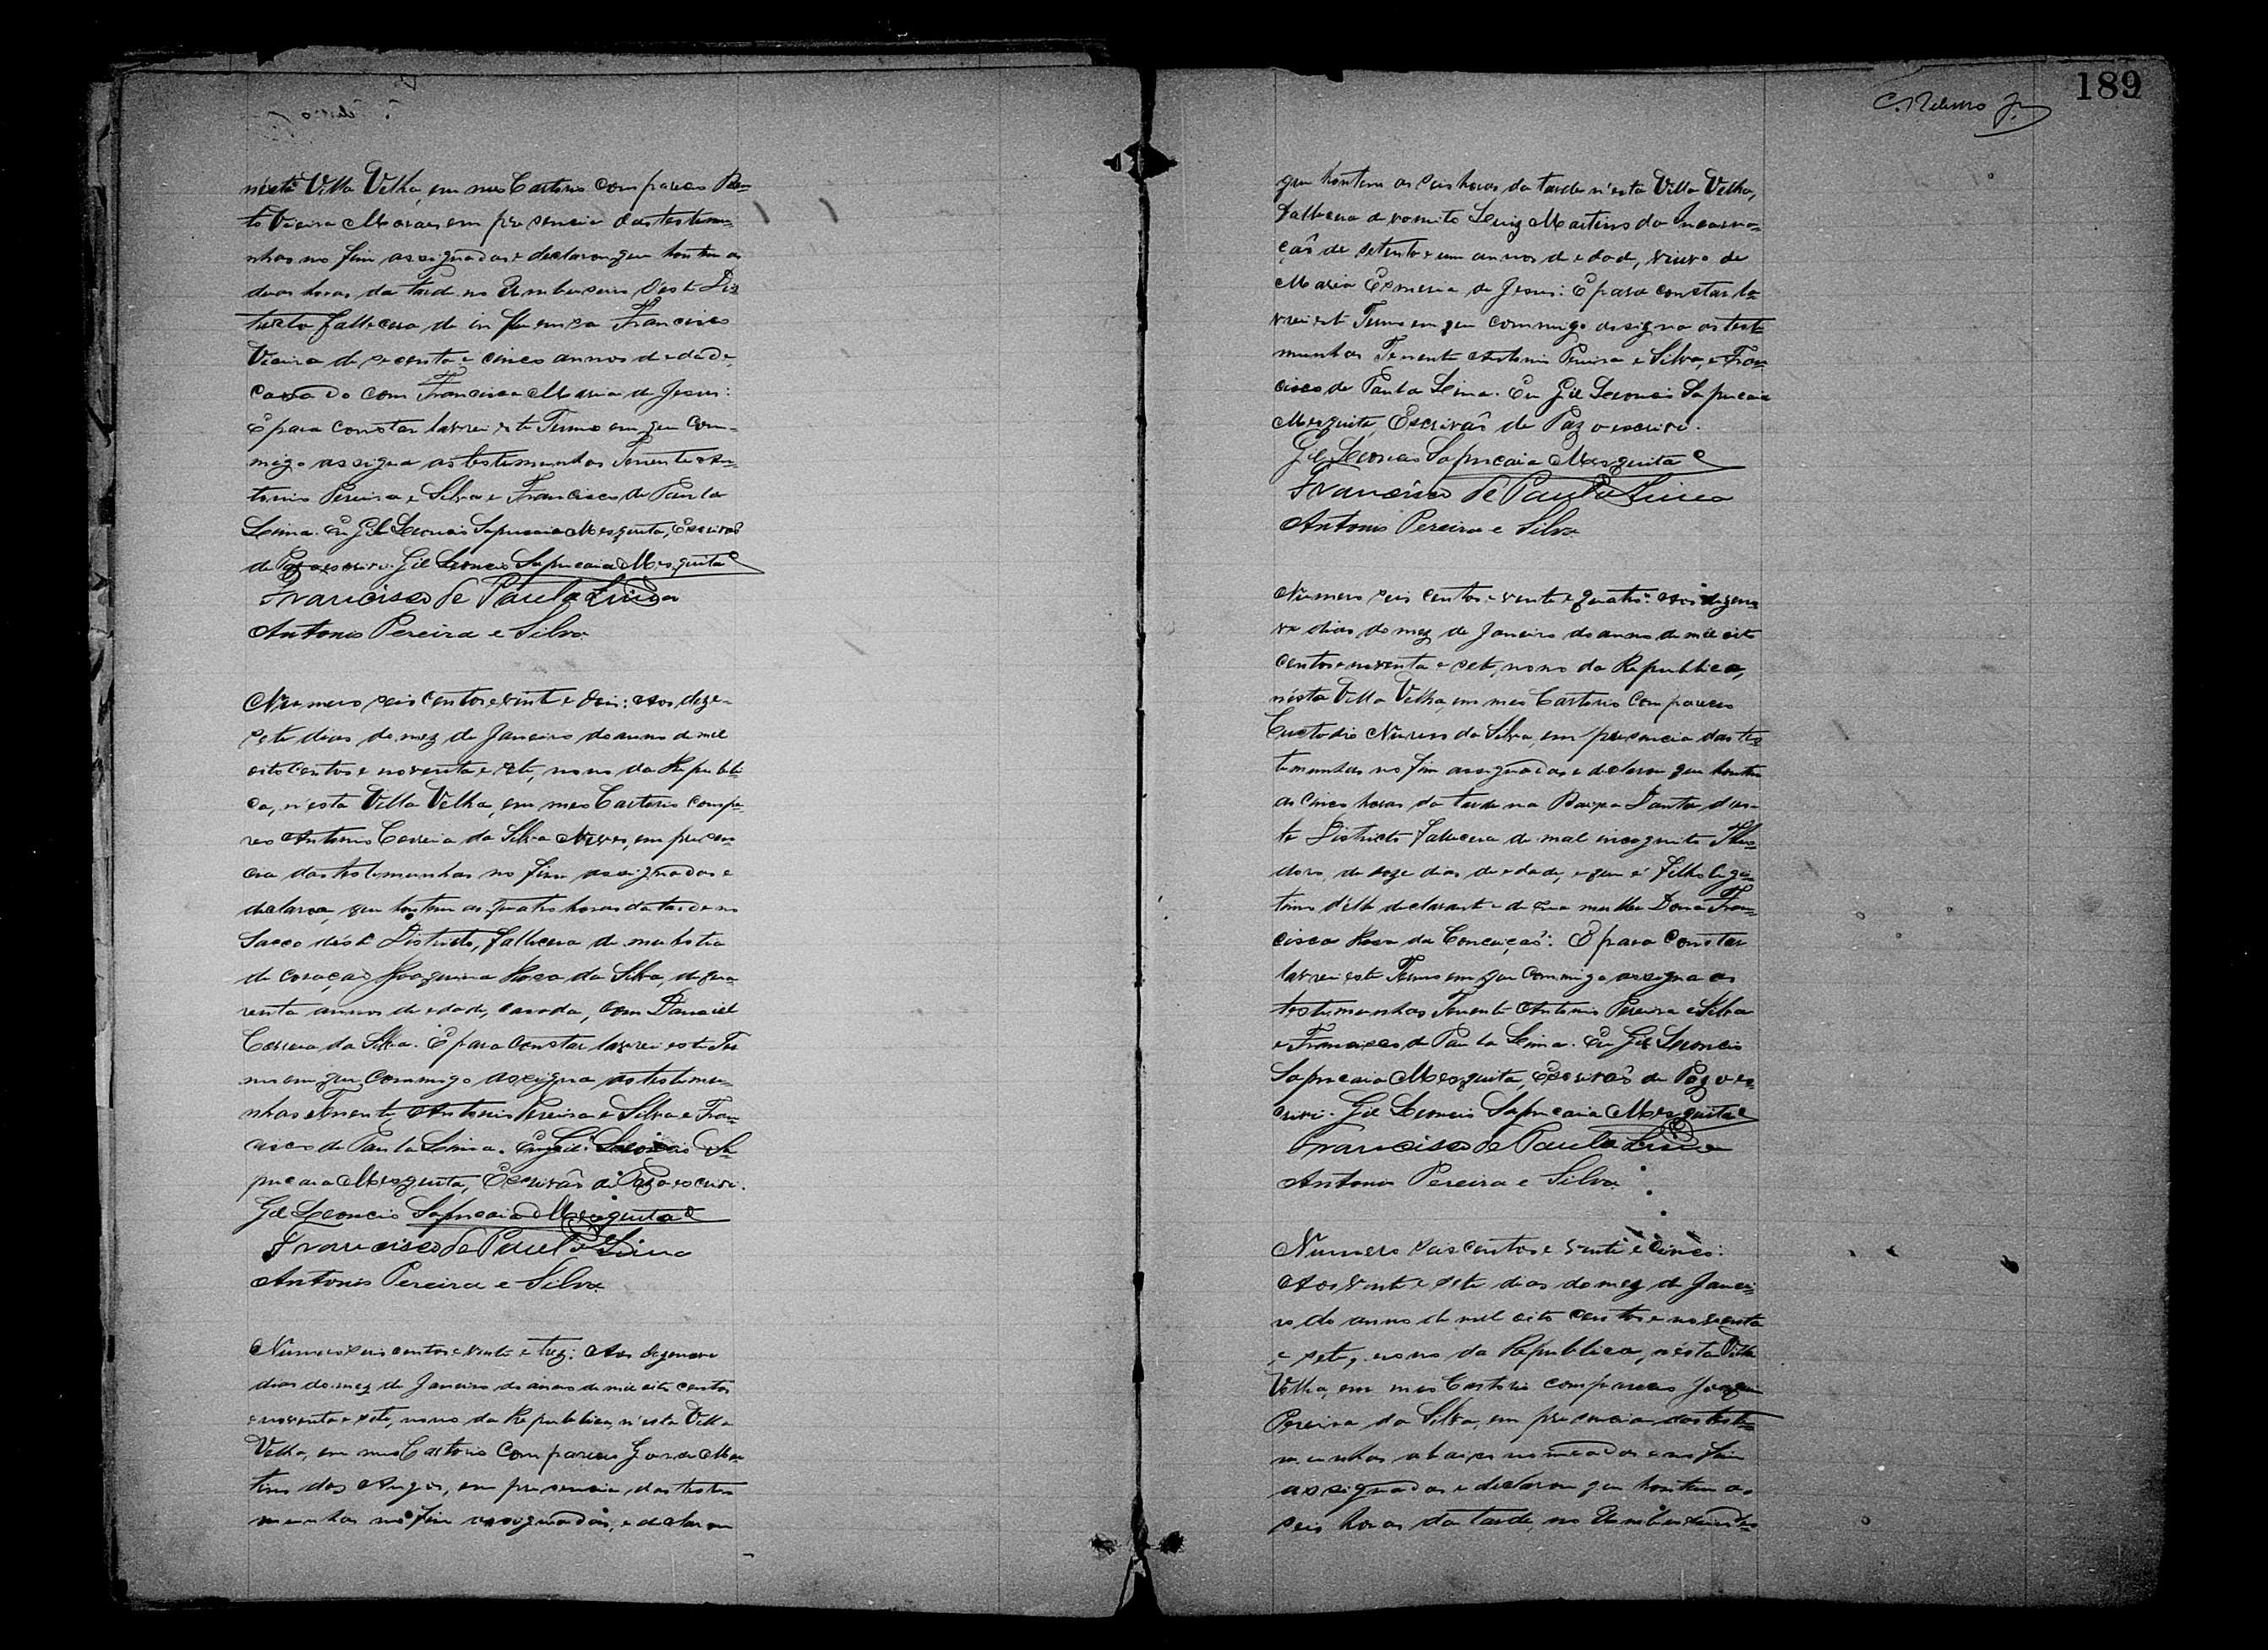 nésta Villa Velha, em meo Cartorio compareceo Ben-
to Vieira Moraes em presencia das testemu-
nhas no fim assignadas e declarou que hontem as
duas horas da tarde no Umbuseiro dést Dis-
tricto fallecera de influensa Francisco
Vieira de secenta e cinco annos de edade,
casado com Francisca Maria de Jesus:
E para constar lavrei este Termo em que com-
migo assigna as testemunhas Tenente An-
tonio Pereira e Silva e Francisco de Paula
Lima. Eu Gil Leoncio Sapucaia Mesquita, Escrivaõ
de Paz o escrivi. Gil Leoncio Sapucaia Mesquita
Francisco de Paula Lima
Antonio Pereira e Silva
Numero seis centos e vinte e dois: Aos deze-
sete dias do mez de Janeiro do anno de mil
oito centos e noventa e sete, nono da Republi-
ca, n'esta Villa Velha, em meo Cartorio compa-
receo Antonio Correia da Silva Neves, em presen-
cia das testemunhas no fim assignadas e
declarou, que hontem as quatro horas da tarde no
Sacco dést Districto, fallecera de molestia
de coraçaõ Joaquina Rosa da Silva, de qua-
renta annos de edade, casada, com Daniel
Correia da Silva. E para constar lavrei este Ter
mo em que commigo assigna as testemu-
nhas Tenente Antonio Pereira e Silva e Fran-
cisco de Paula Lima. Eu Gil Leoncio Sa-
pucaia Mesquita, Escrivaõ de Paz o escrivi.
Gil Leoncio Sapucaia Mesquita
Francisco de Paula Lima
Antonio Pereira e Silva
Numero seis centos e vinte e trez: Aos dezenove
dias do mez de Janeiro do anno de mil oito centos
e noventa e sete, nono da Republica, n'esta Villa
Velha, em meo Cartorio compareceo José Mar
tins dos Anjos, em presencia das teste
munhas no fim assignadas, e declarou
189
C. Ribeiro Jr
que hontem as seis horas da tarde n'esta Villa Velha,
fallecera de vomito Luiz Martins da Incarna-
çaõ de setenta e um annos de edade, viuvo de
Maria Esmeria de Jesus: E para constar la-
vrei este Termo em que commigo assigna as teste
munhas Tenente Antonio Pereira e Silva, e Fran-
cisco de Paula Lima. Eu Gil Leoncio Sapucaia
Mesquita, Escrivaõ de Paz o escrivi.
Gil Leoncio Sapucaia Mesquita
Francisco de Paula Lima
Antonio Pereira e Silva
Numero seis centos e vinte e quatro: Aos dezeno
ve dias do mez de Janeiro do anno de mil oito
centos e noventa e sete, nono da Republica,
nésta Villa Velha, em meo Cartorio compareceo
Custodio Nunes da Silva, em presencia das tes-
temunhas no fim assignadas e declarou que hontem
as cinco horas da tarde na Baixa Danta dés-
te Districto fallecera de mal incognito Theo-
doro, de doze dias de edade, e que é filho legi-
timo d'elle declarante e de sua mulher Dona Fran-
cisca Rosa da Conceiçaõ: E para constar
lavrei este Termo em que commigo assigna as
testemunhas Tenente Antonio Pereira e Silva
e Francisco de Paula Lima. Eu Gil Leoncio
Sapucaia Mesquita, Escrivaõ de Paz o es-
crivi. Gil Leoncio Sapucaia Mesquita
Francisco de Paula Lima
Antonio Pereira e Silva
Numero seis centos e vinte e cinco:
Aos vinte e sete dias do mez de Janei-
ro do anno de mil oito centos e noventa
e sete, nono da Republica, nésta Villa
Velha, em meo Cartorio compareceo Joaquim
Pereira da Silva, em presencia das teste-
munhas abaixo nomeadas e no fim
assignadas e declarou que hontem as
seis horas da tarde, no Umbuseiro dés-